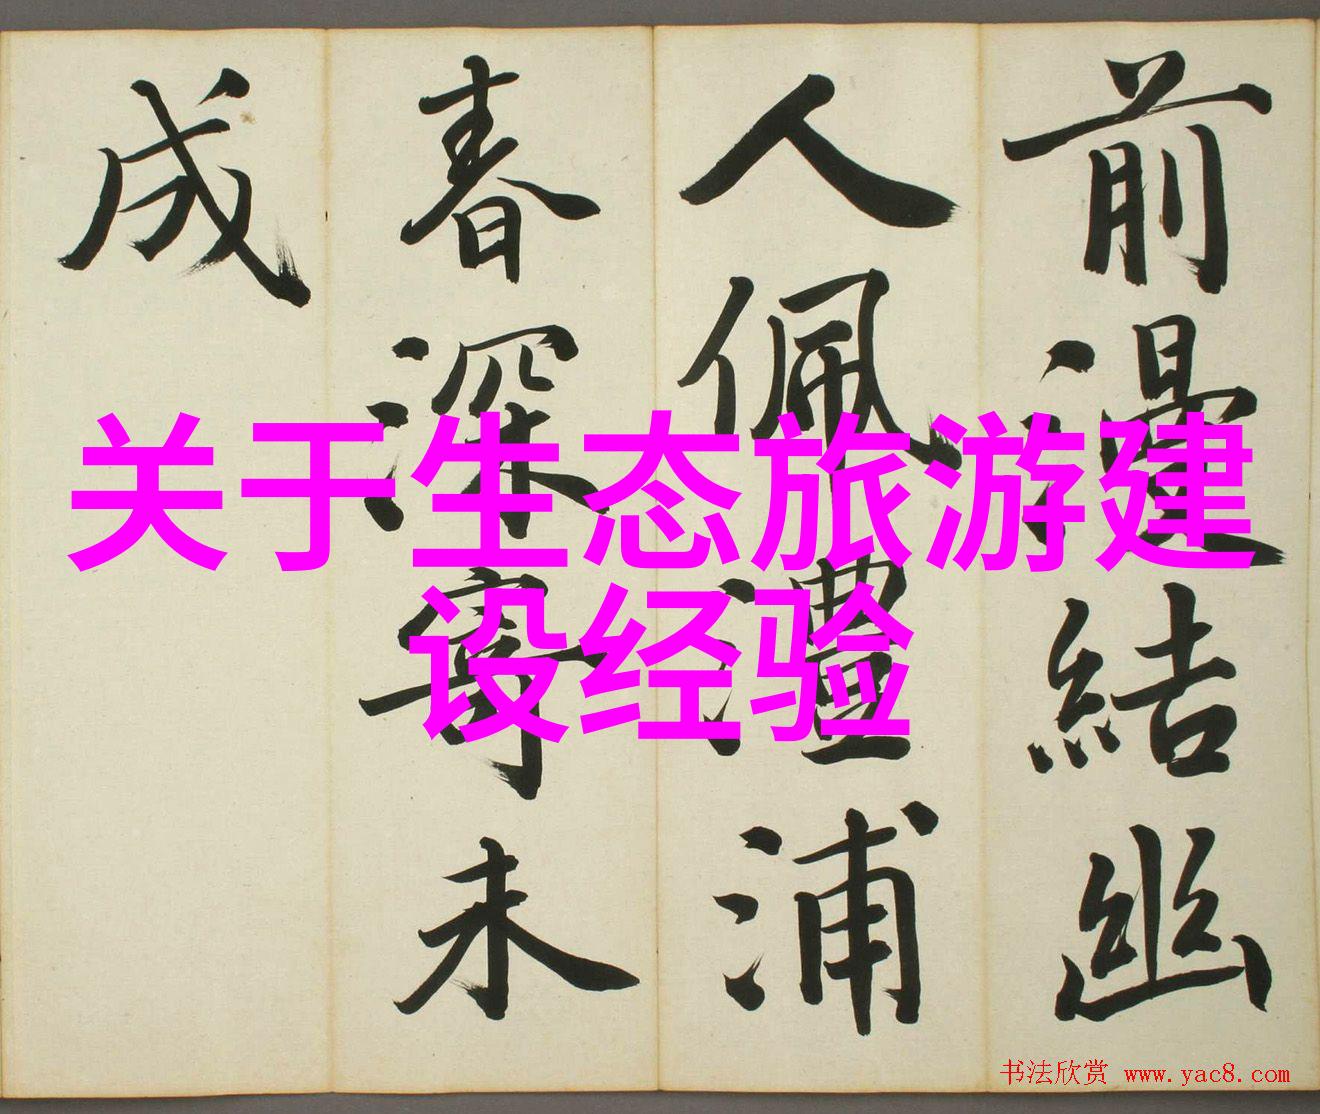 前漫結幽
人佩澧浦
春深寄未
成
关于生态旅游建
设经验
书法欣赏 www.yac8.com